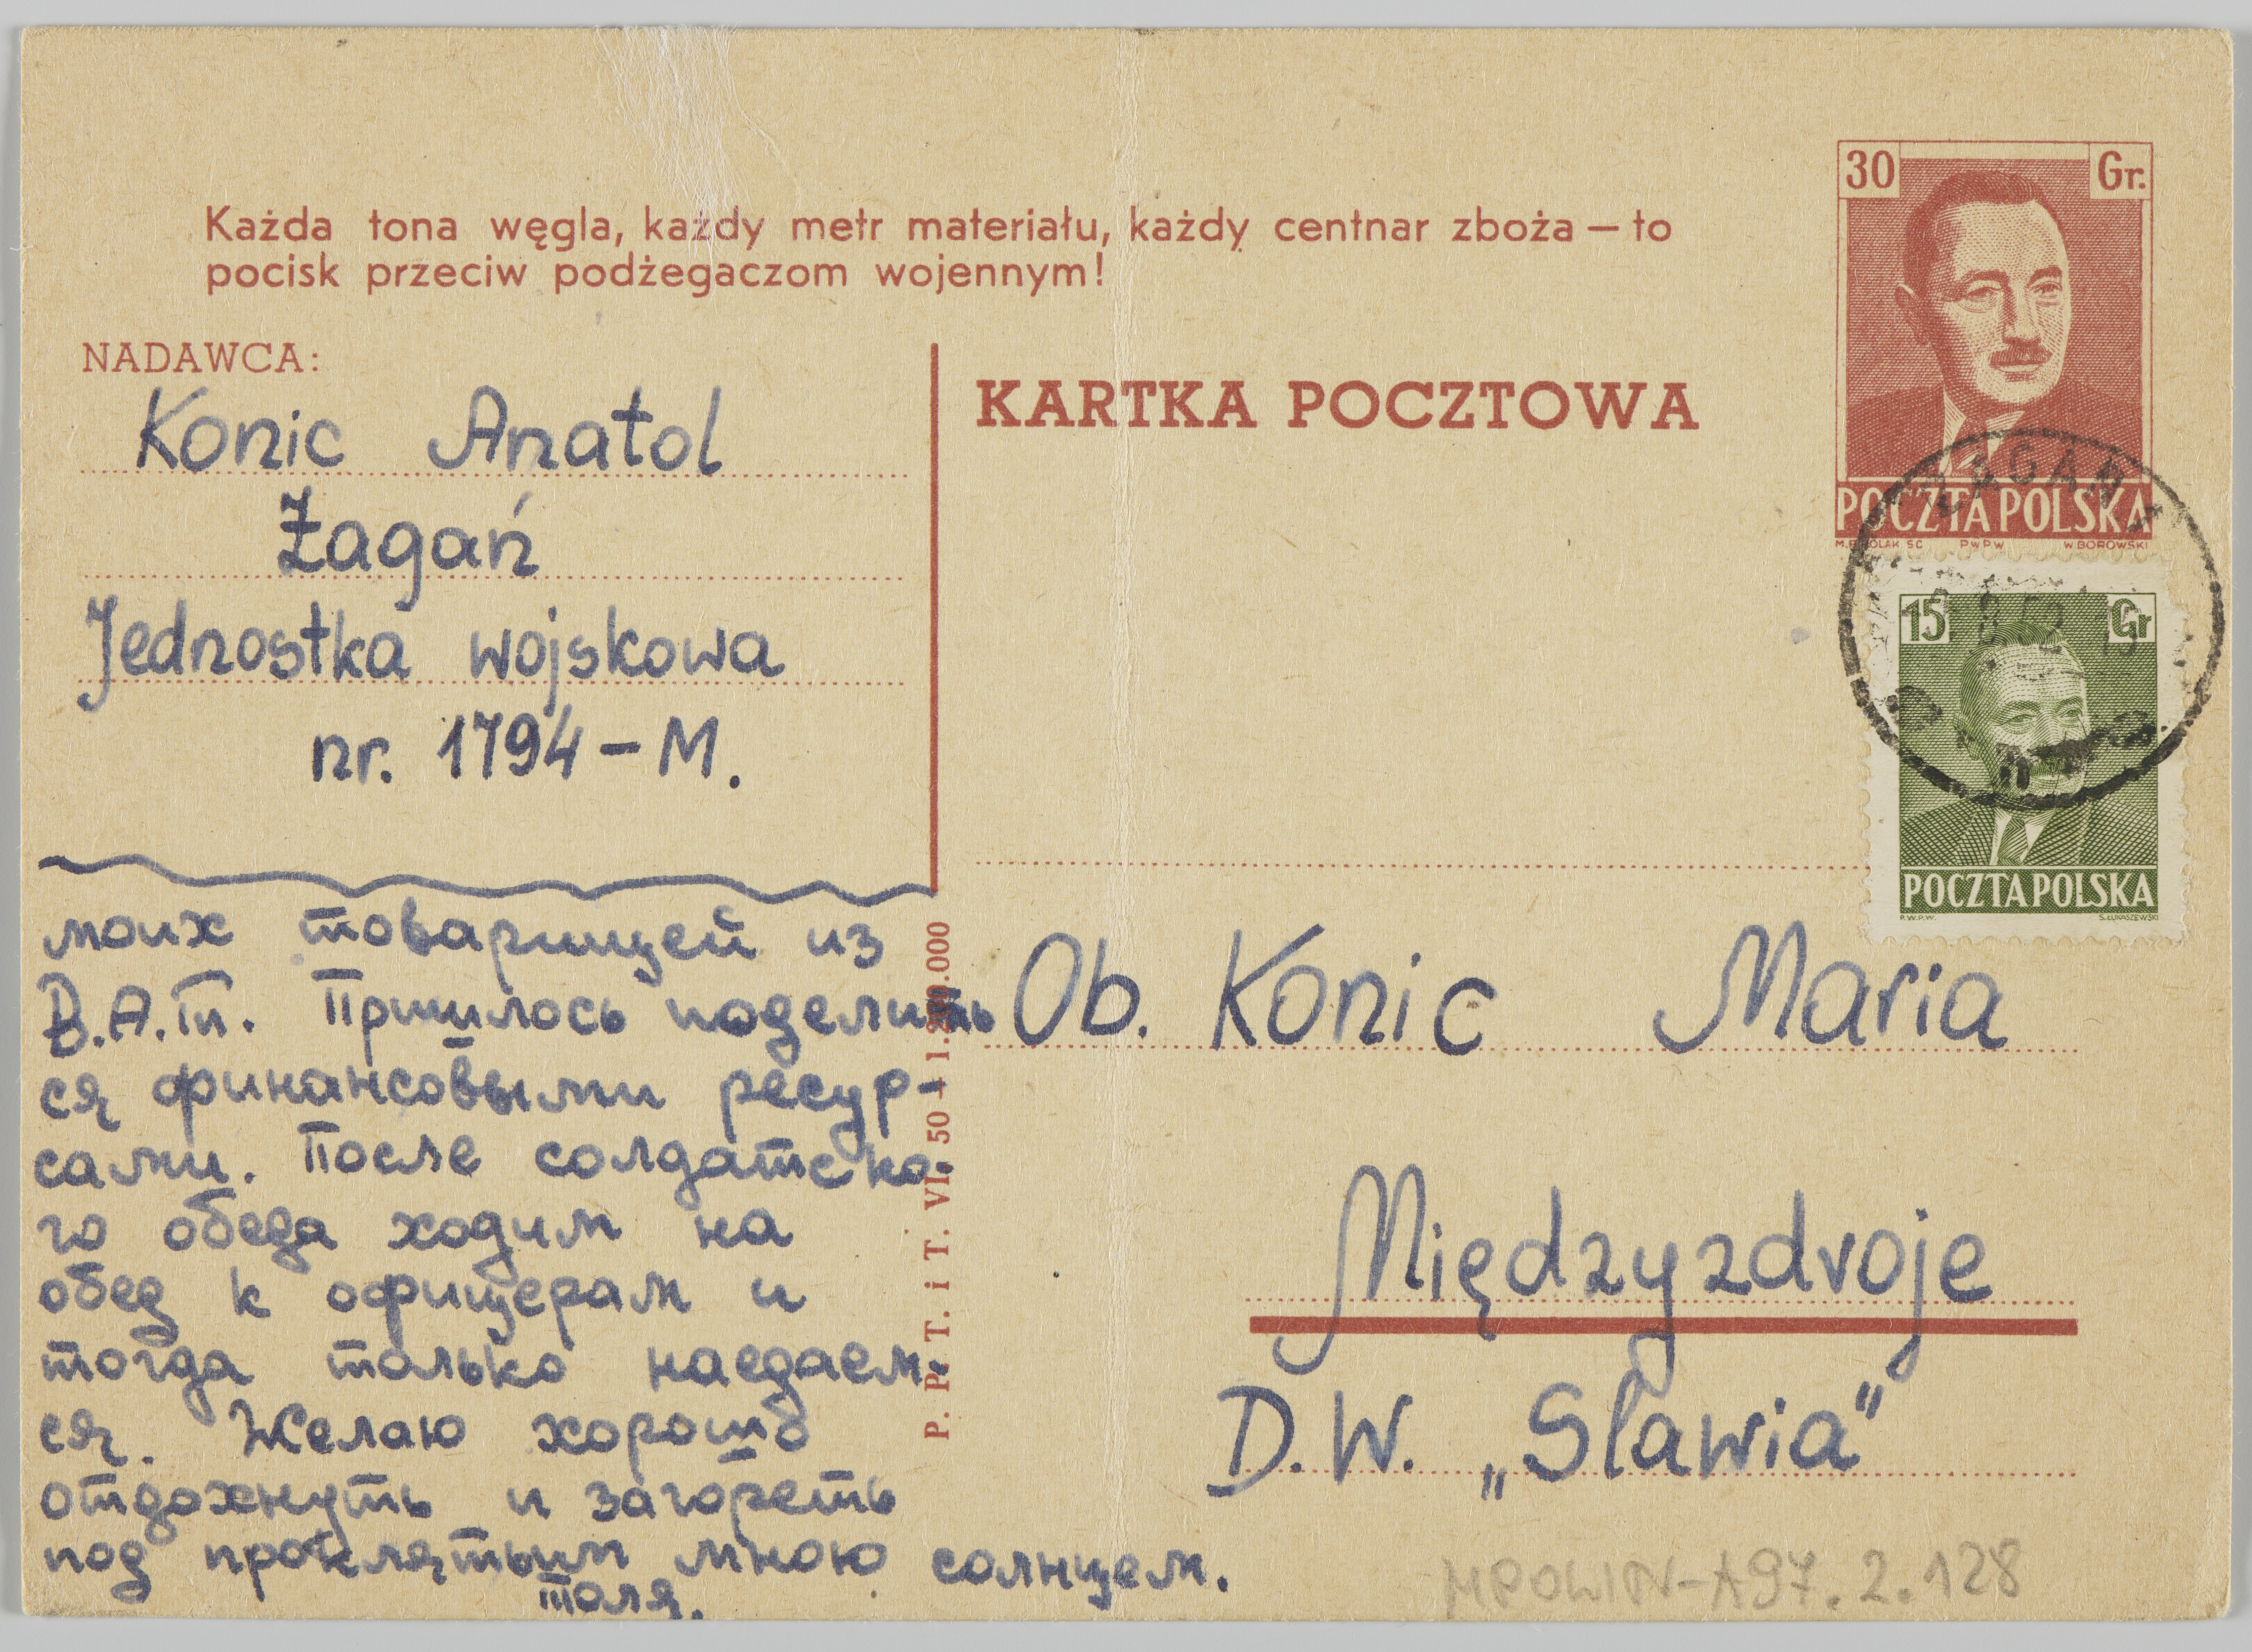 Każda tona węgla, każdy metr materiału, każdy centnar zboża – to
pocisk przeciw podżegaczom wojennym!
30 Gr.
POCZTA POLSKA
PWPW W. BOROWSKI
NADAWCA:
Konic Anatol
Żagań
Jednostka wojskowa
nr. 1794 – M.
KARTKA POCZTOWA
ŻAGAŃ
15 Gr
POCZTA POLSKA
P.W.P.W. S. ŁUKASZEWSKI
моих товарищей из
В.А.Т. Пришлось поделить
ся финансовыми ресур-
сами. После солдатско-
го обеда ходим на
обед к офицерам и
тогда только наедаем-
ся. Желаю хорошо
отдохнуть и загореть
под проклятым мною солнцем.
Толя.
P. P. T. i T. VI. 50
Ob. Konic Maria
Międzyzdroje
D.W. „Slawia"
MPOLIN-A97.2.128